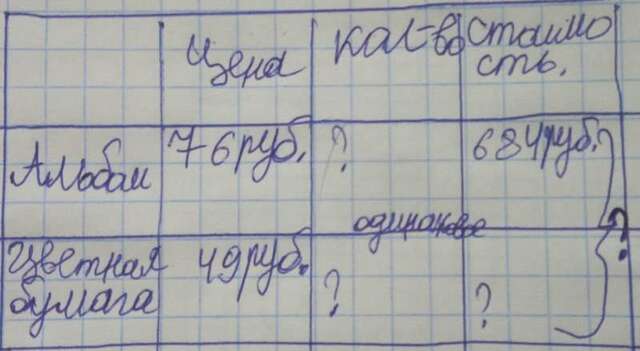 Цена
кол-во
стоимо
сть.
Альбом
76 руб.
?
684 руб.
одинаковое
?
Цветная
бумага
49 руб.
?
?